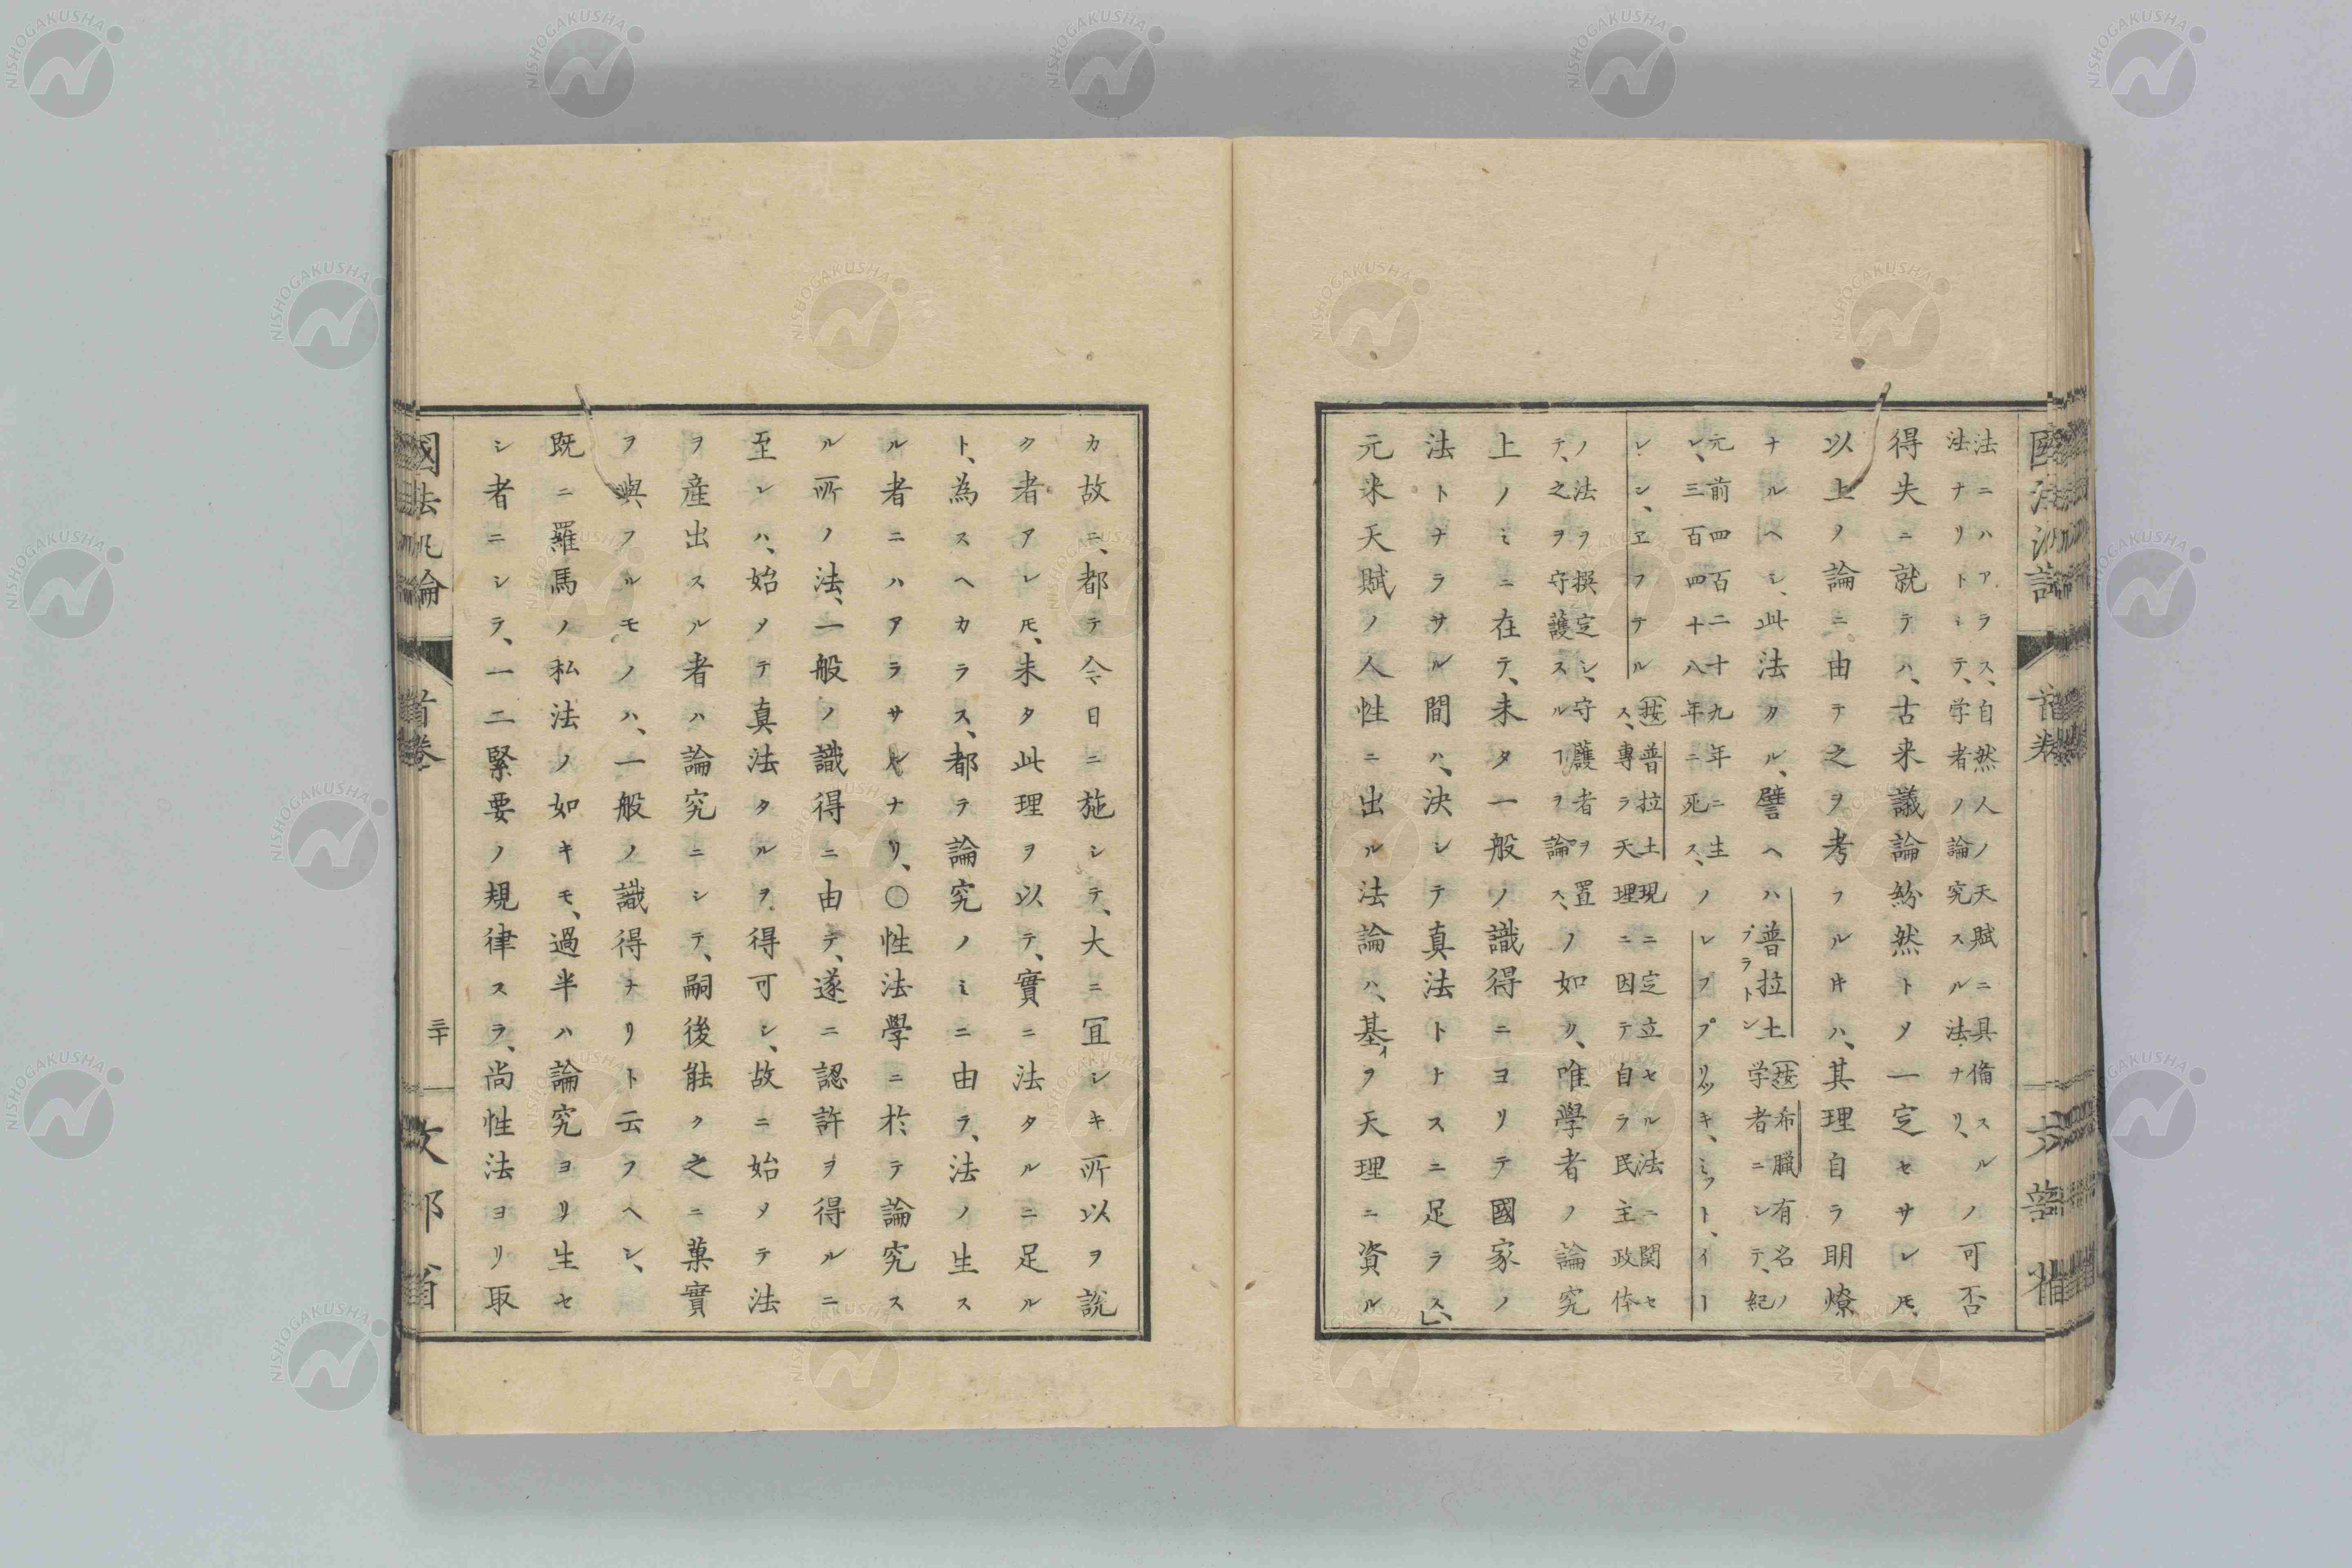 國法汎論
首巻
法ニハアラス、自然人ノ天賦ニ具備スル
法ナリトミテ、学者ノ論究スル法ナリ、
ノ可否
得失ニ就テハ、古来議論紛然トソ一定セサレ𪜈、
以上ノ論ニ由テ之ヲ考フル片ハ、其理自ラ明燎
ナルヘシ、此法タル、譬ヘハ普拉土
プラトン
按希臘有名ノ
学者ニシテ、紀
元前四百二十九年ニ生
レ、三百四十八年ニ死ス、
ノレプブリッキ、ミフト、イー
レシ、ヱフテル
按普拉土現ニ定立セル法ニ関セ
ス、專ラ天理ニ因テ自ラ民主政体
ノ法ヲ撰定シ、守護者ヲ置
テ、之ヲ守護スルヿヲ論ス、
ノ如ク、唯學者ノ論究
上ノミニ在テ、未タ一般ノ識得ニヨリテ國家ノ
法トナラサル間ハ、決シテ真法トナスニ足ラス、
元来天賦ノ人性ニ出ル法論ハ、基イヲ天理ニ資ル
カ故ニ、都テ今日ニ施シテ、大ニ冝シキ所以ヲ説
ク者アレ𪜈、未タ此理ヲ以テ、實ニ法タルニ足ル
ト、為スヘカラス、都テ論究ノミニ由テ、法ノ生ス
ル者ニハアラサルナリ、〇性法學ニ於テ論究ス
ル所ノ法、一般ノ識得ニ由テ、遂ニ認許ヲ得ルニ
至レハ、始メテ真法タルヲ得可シ、故ニ始メテ法
ヲ産出スル者ハ論究ニシテ、嗣後能ク之ニ菓實
ヲ與フルモノハ、一般ノ識得ナリト云フヘシ、
既ニ羅馬ノ私法ノ如キモ、過半ハ論究ヨリ生セ
シ者ニシテ、一二緊要ノ規律スラ、尚性法ヨリ取
國法汎論
首巻
三十
文部省
NISHOGAKUSHA